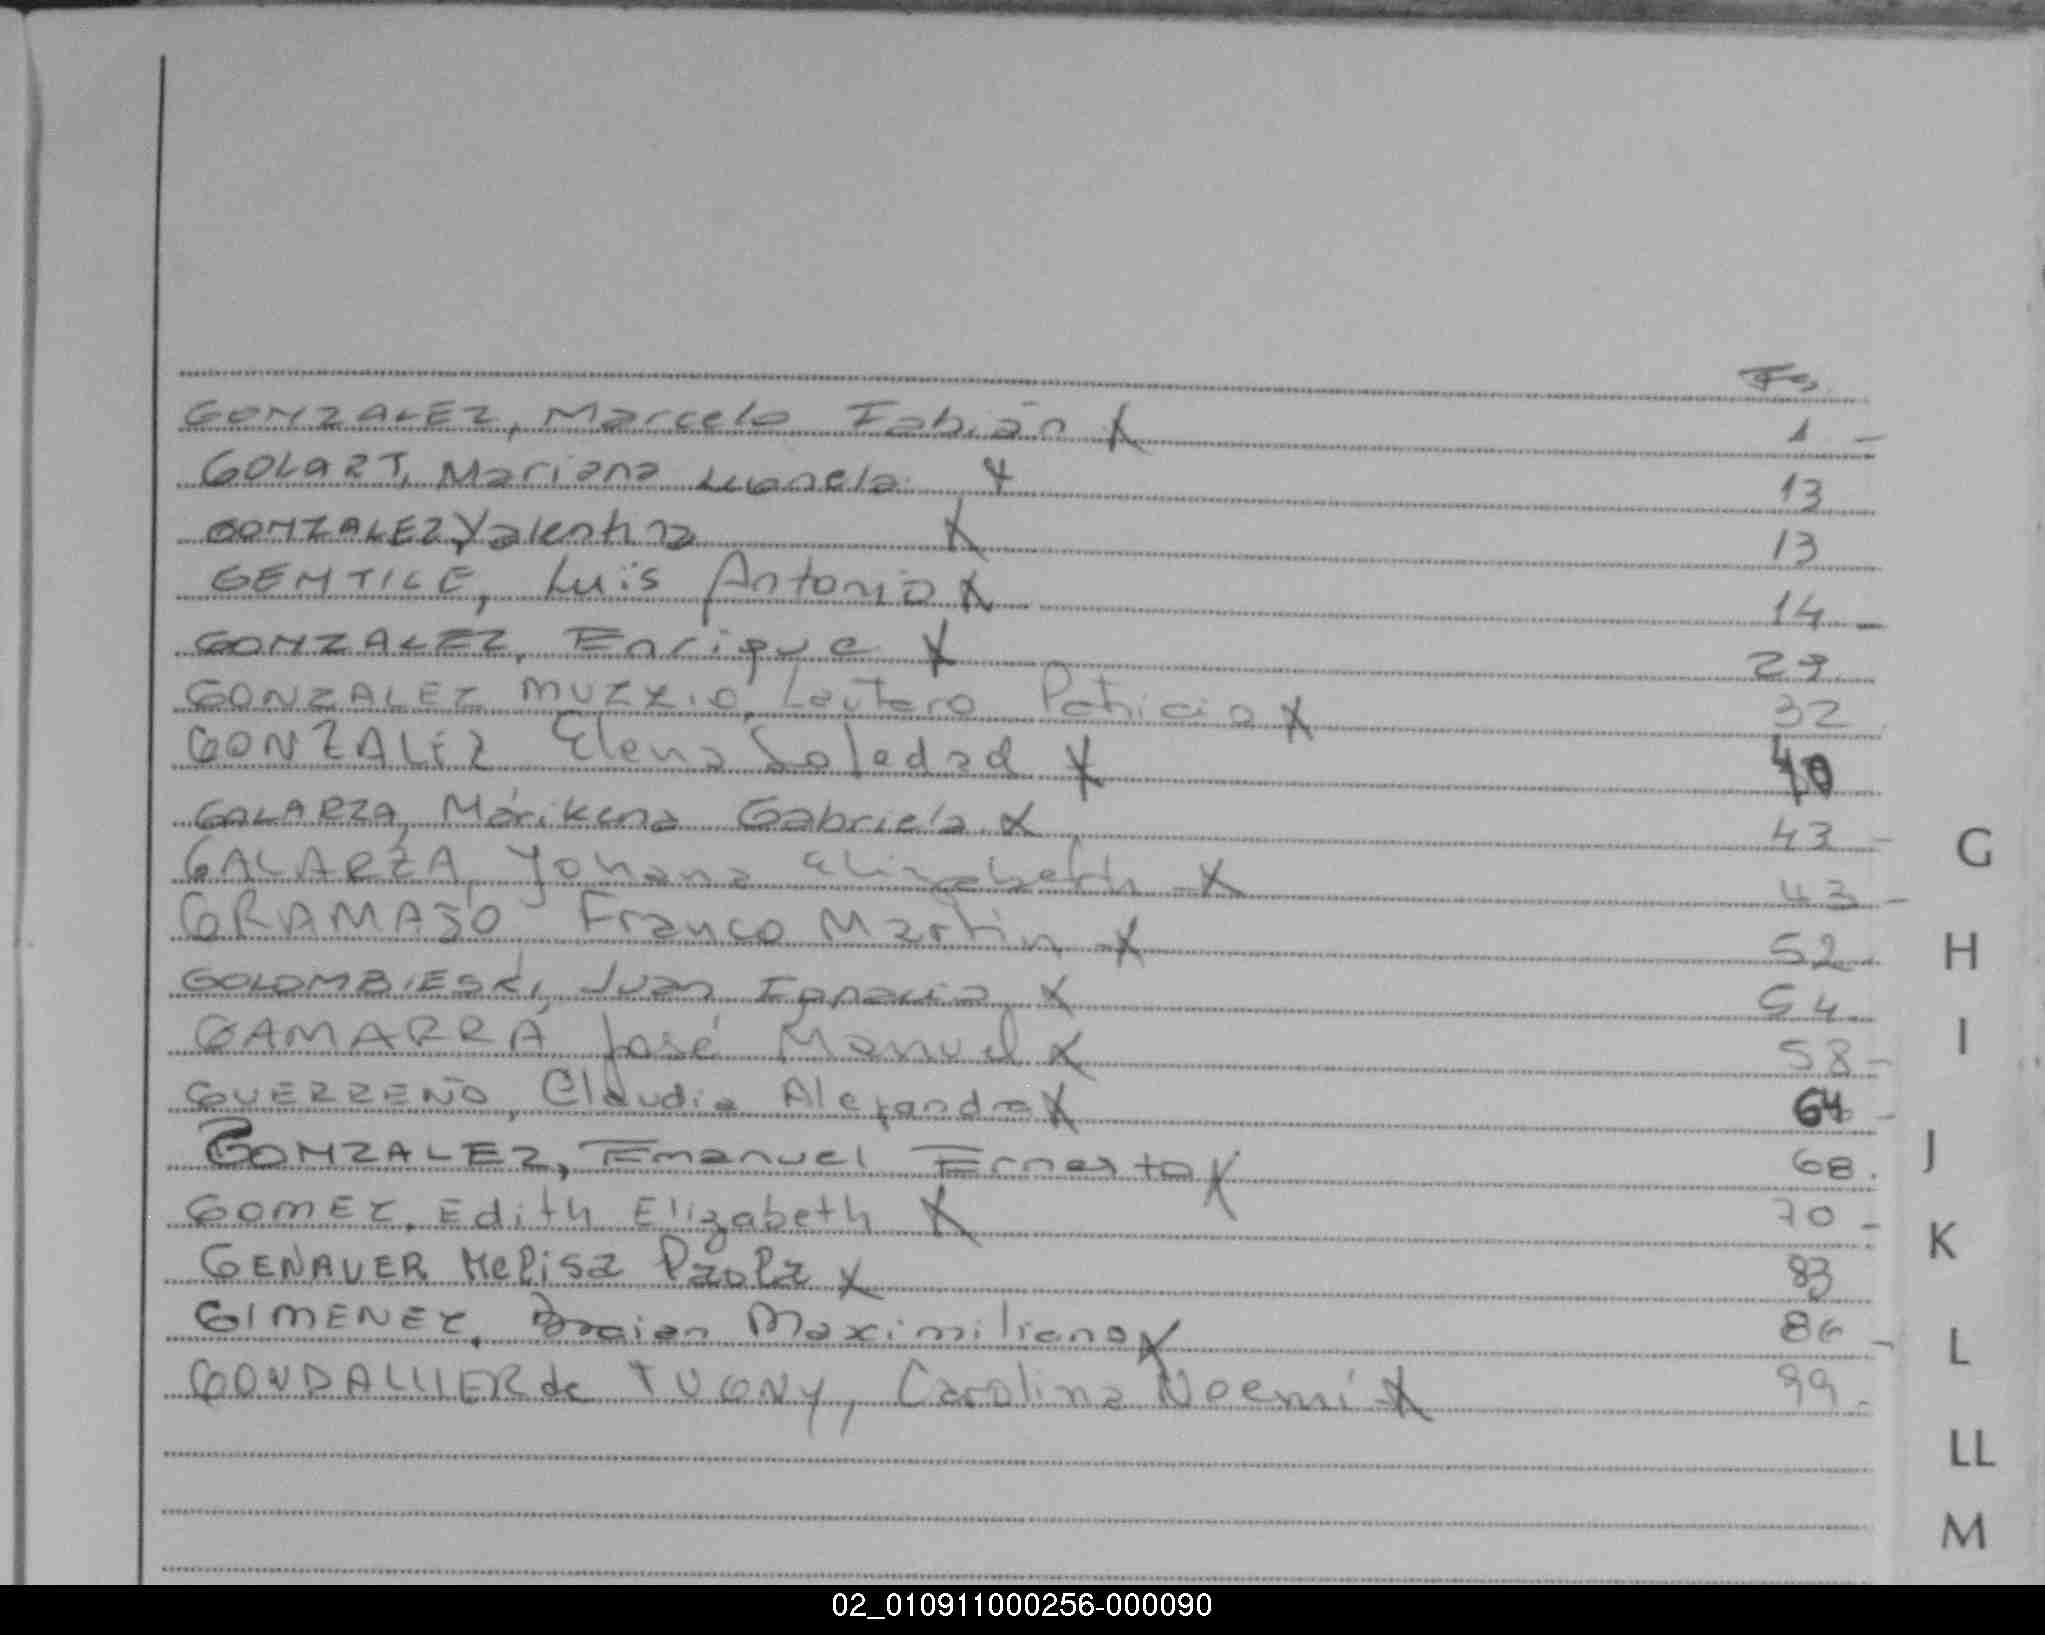 Fs.
GONZALEZ, Marcelo Fabián X 1 -
GOLART, Mariana Luanela X 13
GONZALEZ, Valentina X 13
GENTILE, Luis Antonio X 14 -
GONZALEZ, Enrique X 29
GONZALEZ MUZZIO, Lautaro Patricio X 32
GONZALEZ Elena Soledad X 40
GALARZA, Márikena Gabriela X 43 -
GALARZA, Yohana Elizabeth X 43 -
GRAMAJO Franco Martin X 52
GOLOMBIESKI, Juan Ignacio X 54
GAMARRA José Manuel X 58 -
GUERREÑO, Claudia Alejandra X 64 -
GONZALEZ, Emanuel Ernesto X 68.
GOMEZ, Edith Elizabeth X 70 -
GENAUER Melisa Paola X 83
GIMENEZ, Braian Maximiliano X 86 -
GONDALLIER de TUGNY, Carolina Noemí X 99 -
G
H
I
J
K
L
LL
M
02_010911000256-000090